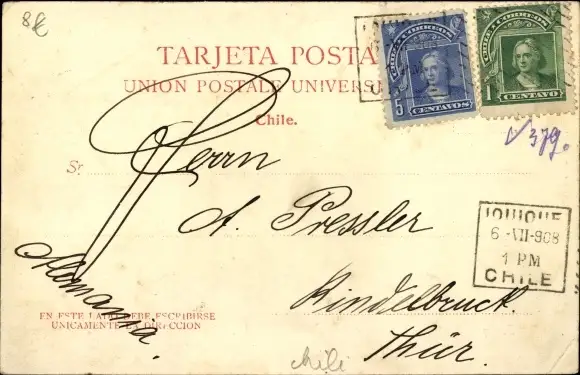 8€
TARJETA POSTA
UNION POSTALE UNIVERSE
Chile.
CHILE CORREOS
5 CENTAVOS
CHILE CORREOS
1 CENTAVO
√379.
Sr.
Herrn
A. Pressler
Kindelbruck
Thür.
Alemania.
IQUIQUE
6-VII-908
1 PM
CHILE
EN ESTE LADO DEBE ESCRIBIRSE
UNICAMENTE LA DIRECCION
chili